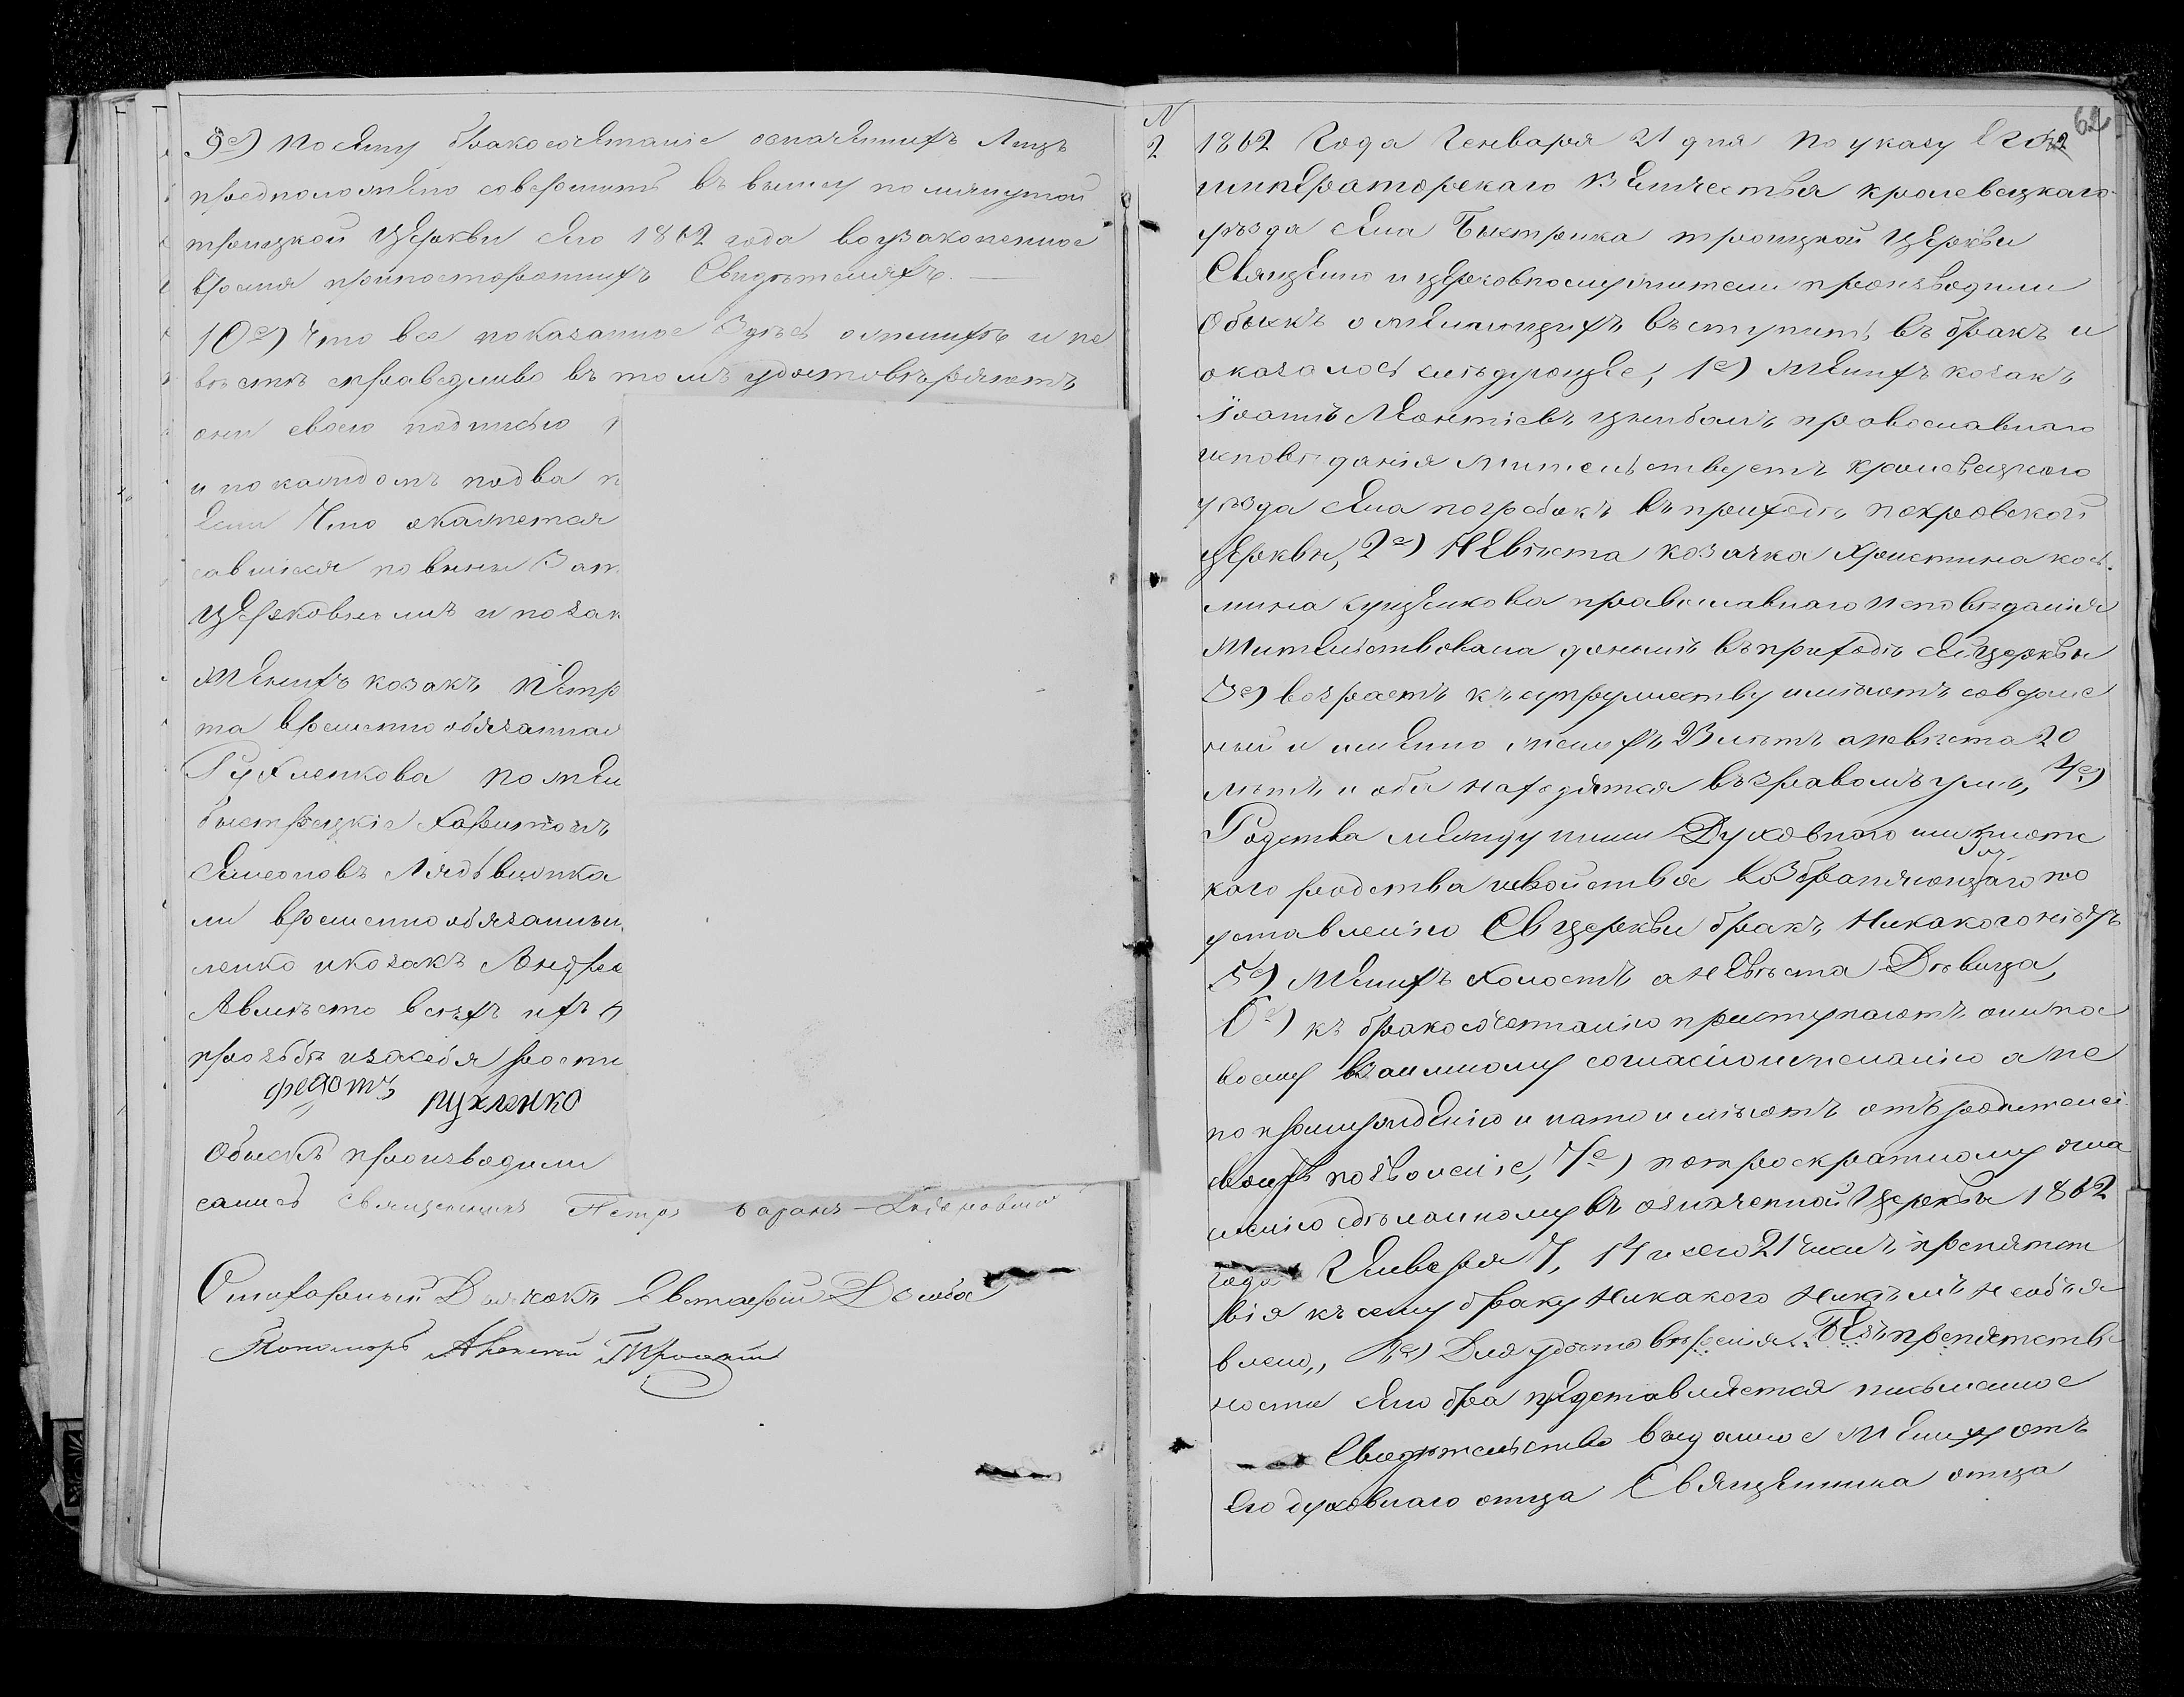 9е) По сему бракосочетаніе означенныхъ лицъ
предположено совершить въ вышеу помянутой
троицкой Церкви сего 1862 года воузаконенное
время припостороннихъ Свидѣтеляхъ. —
10е) Что все показанное Здѣсь ожениխъ и не
вѣстѣ справедливо въ томъ удостовѣряютъ
они своею подписью
и покаждомъ подва
если Что окажется
савшіеся повинны Зап
Церковнымъ и погаж
Женихъ козакъ Петр
та временно обязанная
Рухленкова поже
быстрецкіе Харитонъ
Симеоновъ
ми временнообязанны
ленко икозакъ Андрей
Авмѣсто всѣхъ ихъ
прозьбѣ изасебя роспи
Федотъ рухленко
Обыскъ производили
самись Священникъ Петръ
Стихарный Дьячокъ Евстафій
Пономарь Алексѣй Троцкій
62
N
2
1862 Года Генваря 21 дня По указу Его
императорскаго Величества кролевецкаго
уѣзда села Быстрика троицкой Церкви
Священно и церковнослужители производили
Обыскъ ожелающихъ вступить въ бракъ и
оказалось слѣдующее, 1е) Женихъ козакъ
Іоаннъ Леонтіевъ цимбалъ православнаго
исповѣданія жительствуетъ кролевецкого
уѣзда села погребокъ въприходѣ покровской
Церкви, 2е) Невѣста козачка Христина кось
мина православнаго Исповѣданія
Жительствовала доннынѣ въприходѣ сей Церкви
3е) возрастъ къ супружеству имѣютъ соверше
ный и именно женихъ лѣтъ аневѣста 20
лѣтъ и оба находятся въздравомъ умѣ, 4е)
Родства между ними Духовнаго или плотс
каго родства исвойства возбраняющаго по
установленію Св церкви бракъ Никакого нѣтъ
5е) Женихъ Холостъ а невѣста Девица,
6е) къ бракосочетанію приступаютъ они по с
воему взаимному согласію ижеланію а не
по принужденію и нато имѣютъ отъ родителей
своихъ позволеніе, 7е) потроекратному огла
шенію сдѣланному въ означенной Церкви 1862
года Января 7, 14 исего 21 чиселъ препятст
вія къ сему браку Никакого Никѣмъ необъя
влено,, 8е) Для удостовѣренія Безпрепятств
ности сего бра представляется письменное
Свидѣтельство выданное Жениху отъ
его духовнаго отца Священника отца